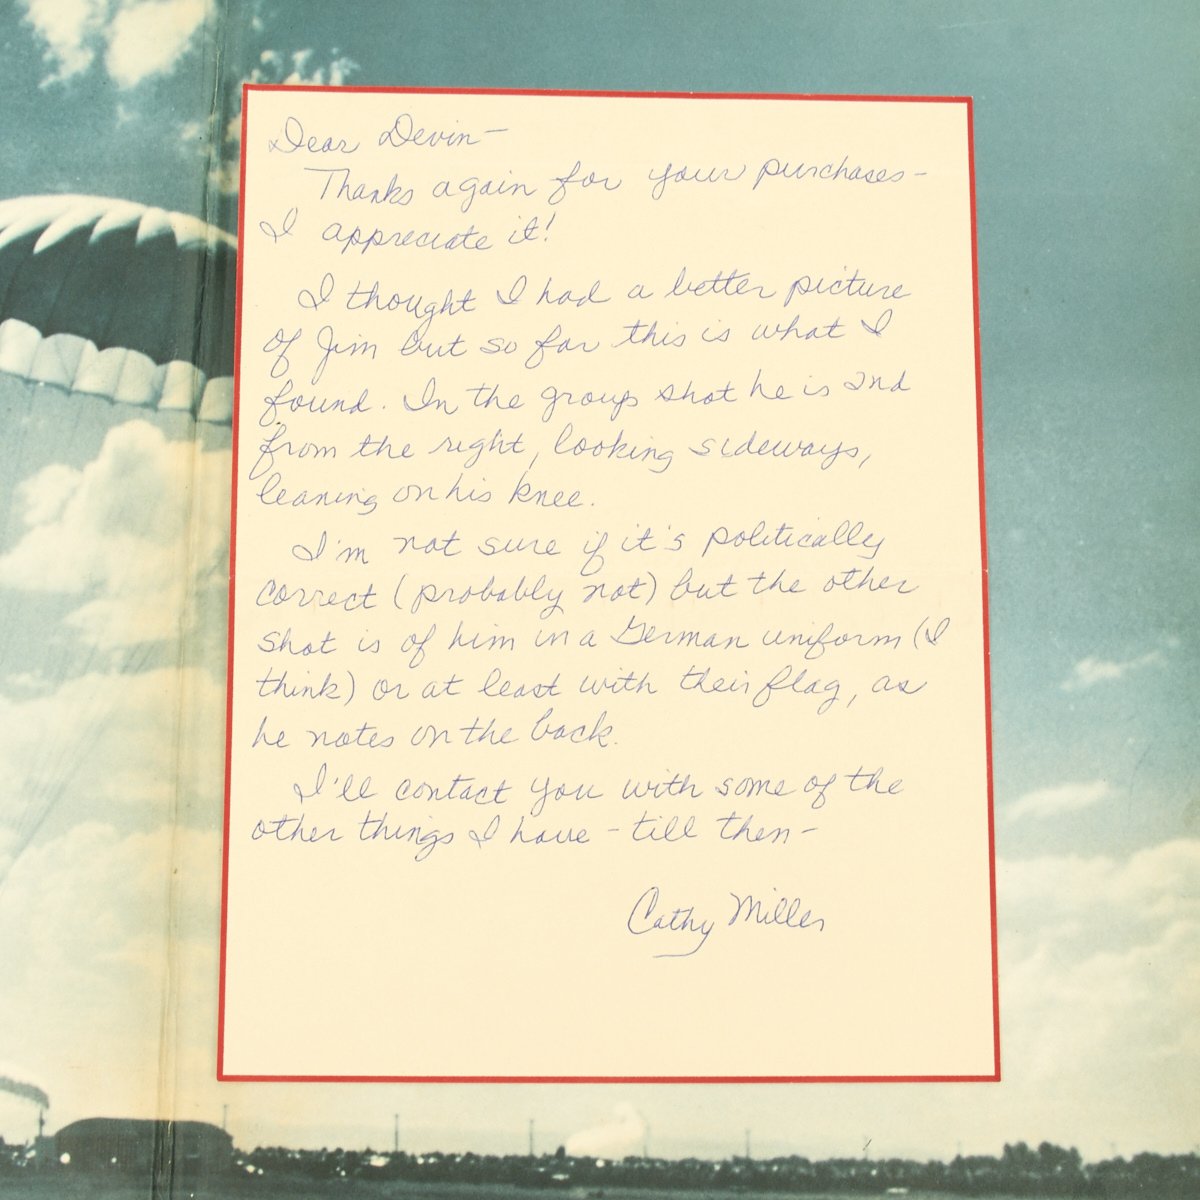 Dear Devin—
Thanks again for your purchases—
I appreciate it!
I thought I had a better picture
of Jim but so far this is what I
found. In the group shot he is 2nd
from the right, looking sideways,
leaning on his knee.
I'm not sure if it's politically
correct (probably not) but the other
shot is of him in a German uniform (I
think) or at least with their flag, as
he notes on the back.
I'll contact you with some of the
other things I have – till then –
Cathy Miller